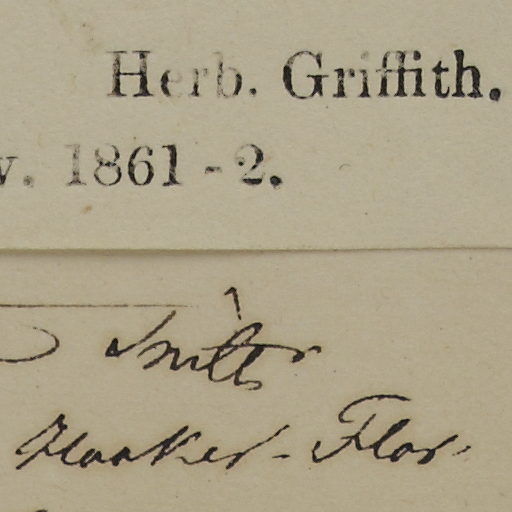 Herb. Griffith.
v. 1861-2.
Smith
Hooker - Flor.